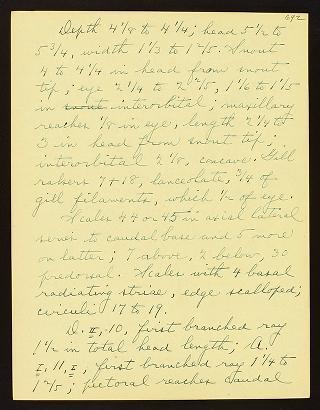 292
Depth 4 1/8 to 4 1/4; head 5 1/2 to
5 3/4, width 1 1/3 to 1 2/5. Snout
4 to 4 1/4 in head from snout
tip; eye 2 1/4 to 2 2/5, 1 1/6 to 1 1/5
in interorbital; maxillary
reaches 1/8 in eye, length 2 1/4 to
3 in head from snout tip;
interorbital 2 1/8, concave. Gill
rakers 7+18, lanceolate, 3/4 of
gill filaments, which 1/2 of eye.
Scales 44 or 45 in axial lateral
series to caudal base and 5 more
on latter; 7 above, 7 below, 30
predorsal. Scales with 4 basal
radiating striae, edge scalloped;
circuli 17 to 19.
D. II, 10, first branched ray
1 1/2 in total head length; A.
I, 11, I, first branched ray 1 1/4 to
1 2/5; pectoral reaches caudal